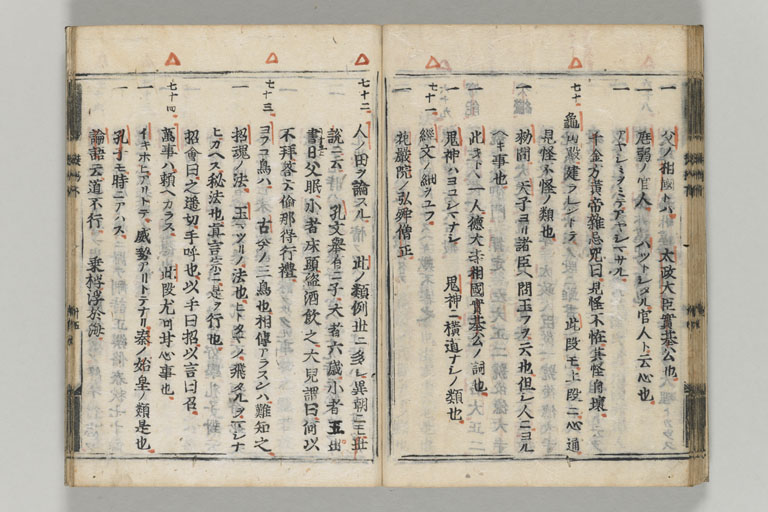 一 父ノ相國トハ 太政大臣實基公也
一 尫弱ノ官人 ハツトシタル官人ト云心也
一 アヤシミヲミテアヤシマサル
千金方黄帝雜忌咒曰見怪不怪其怪自壞
七十 龜山殿建ラレントテ 此段モ上段ニ心通
見怪不怪ノ類也
一 勅問 天子ヨリ諸臣ヘ問玉フヲ云也但シ人ニヨル
ヘキ事也
一 此オトヽ一人 德大寺相國實基公ノ詞也
一 鬼神ハヨコシマナシ 鬼神ニ横道ナシノ類也
七十一 經文ノ細ヲユフ
一 花嚴院ノ弘舜僧正
七十二 人ノ田ヲ論スル 此ノ類例世ニ多シ異朝ニモ世
説ニ云 孔文擧有二子大者六歳小者五歳
晝日父眠小者床頭盜酒飲之大兒謂曰何以
不拜答云偷那得行禮
七十三 ヨフコ鳥ハ 古今ノ三鳥也相傳アラスンハ難知之
一 招魂ノ法 玉マツリノ法也
ヒカヘス秘法也真言宗ニ是ヲ行也
招會曰之遥切手呼也以手曰招以言曰召
七十四 萬事ハ頼ヘカラス 此段尤可甘心事也
一 イキホヒアリトテ 威勢アリトテナリ秦ノ始皇ノ類是也
一 孔子モ時ニアハス
論語云道不行 乗桴浮於海